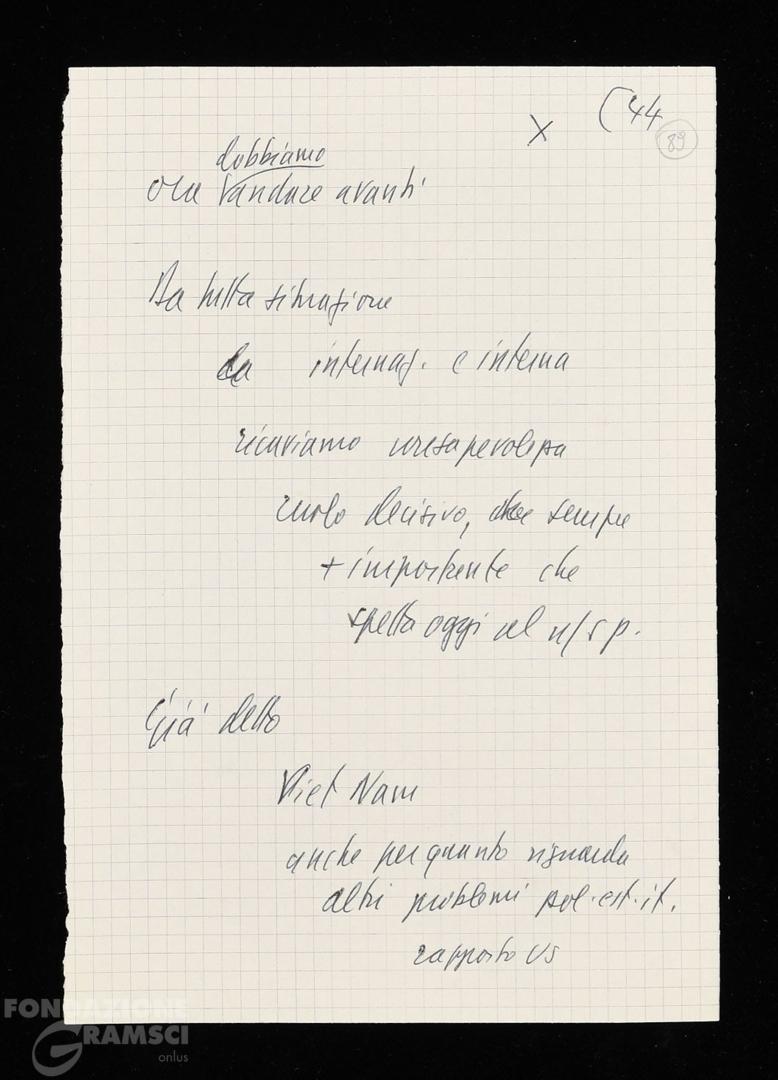 X (44
89
dobbiamo
ora andare avanti
Da tutta situazione
internaz. e interna
ricaviamo consapevolezza
ruolo decisivo, sempre
+ importante che
spetta oggi al n/s p.
Già detto
Viet Nam
anche per quanto riguarda
altri problemi pol. est. it.
rapporto US
FONDAZIONE
GRAMSCI
onlus